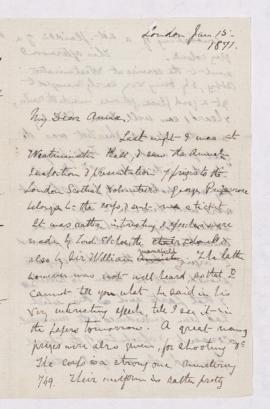 London Jan. 15.
1871.
My Dear Annie,
Last night I was at
Westminster Hall, & saw the Annual
Inspection & presentation of prizes to the
London Scottish Volunteers. George Primrose
belongs to the corps, & sent me a ticket.
It was rather interesting, & speeches were
made by Lord Elcho,
also by Sir William The latter
however was not well heard so that I
cannot tell you what he said in his
very interesting speech, till I see it in
the papers tomorrow. A great many
prizes were also given, for shooting &c
The corps is a strong one numbering
749. Their uniform is rather pretty